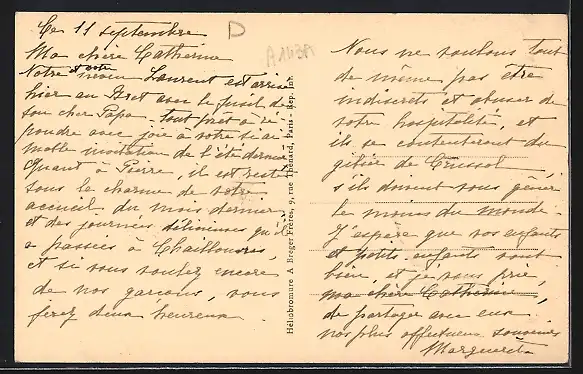 Ce 11 septembre
D
A 143A
Ma chère Catherine
Notre et votre neveu Laurent est arrivé
hier au Pret avec le fusil de
son cher Papa - tout prêt à ré-
pondre avec joie à votre si ai-
mable invitation de l'été dernier.
Quant à Pierre, il est resté
sous le charme de votre
accueil du mois dernier
et des journées délicieuses qu'il
a passées à
et si vous voulez encore
de nos garçons, vous
ferez deux heureux
Héliobromure A Breger Frères, 9, rue Thénard, Paris - Rep. Inh.
Nous ne voulons tout
de même pas être
indiscrets et abuser de
votre hospitalité, et
ils se contenteront du
gîtier de Crussol
s'ils doivent vous gêner
le moins du monde -
J'espère que vos enfants
et petits enfants vont
bien, et je vous prie,
ma chère Catherine,
de partager avec eux
nos plus affectueux souvenirs
Marguerite